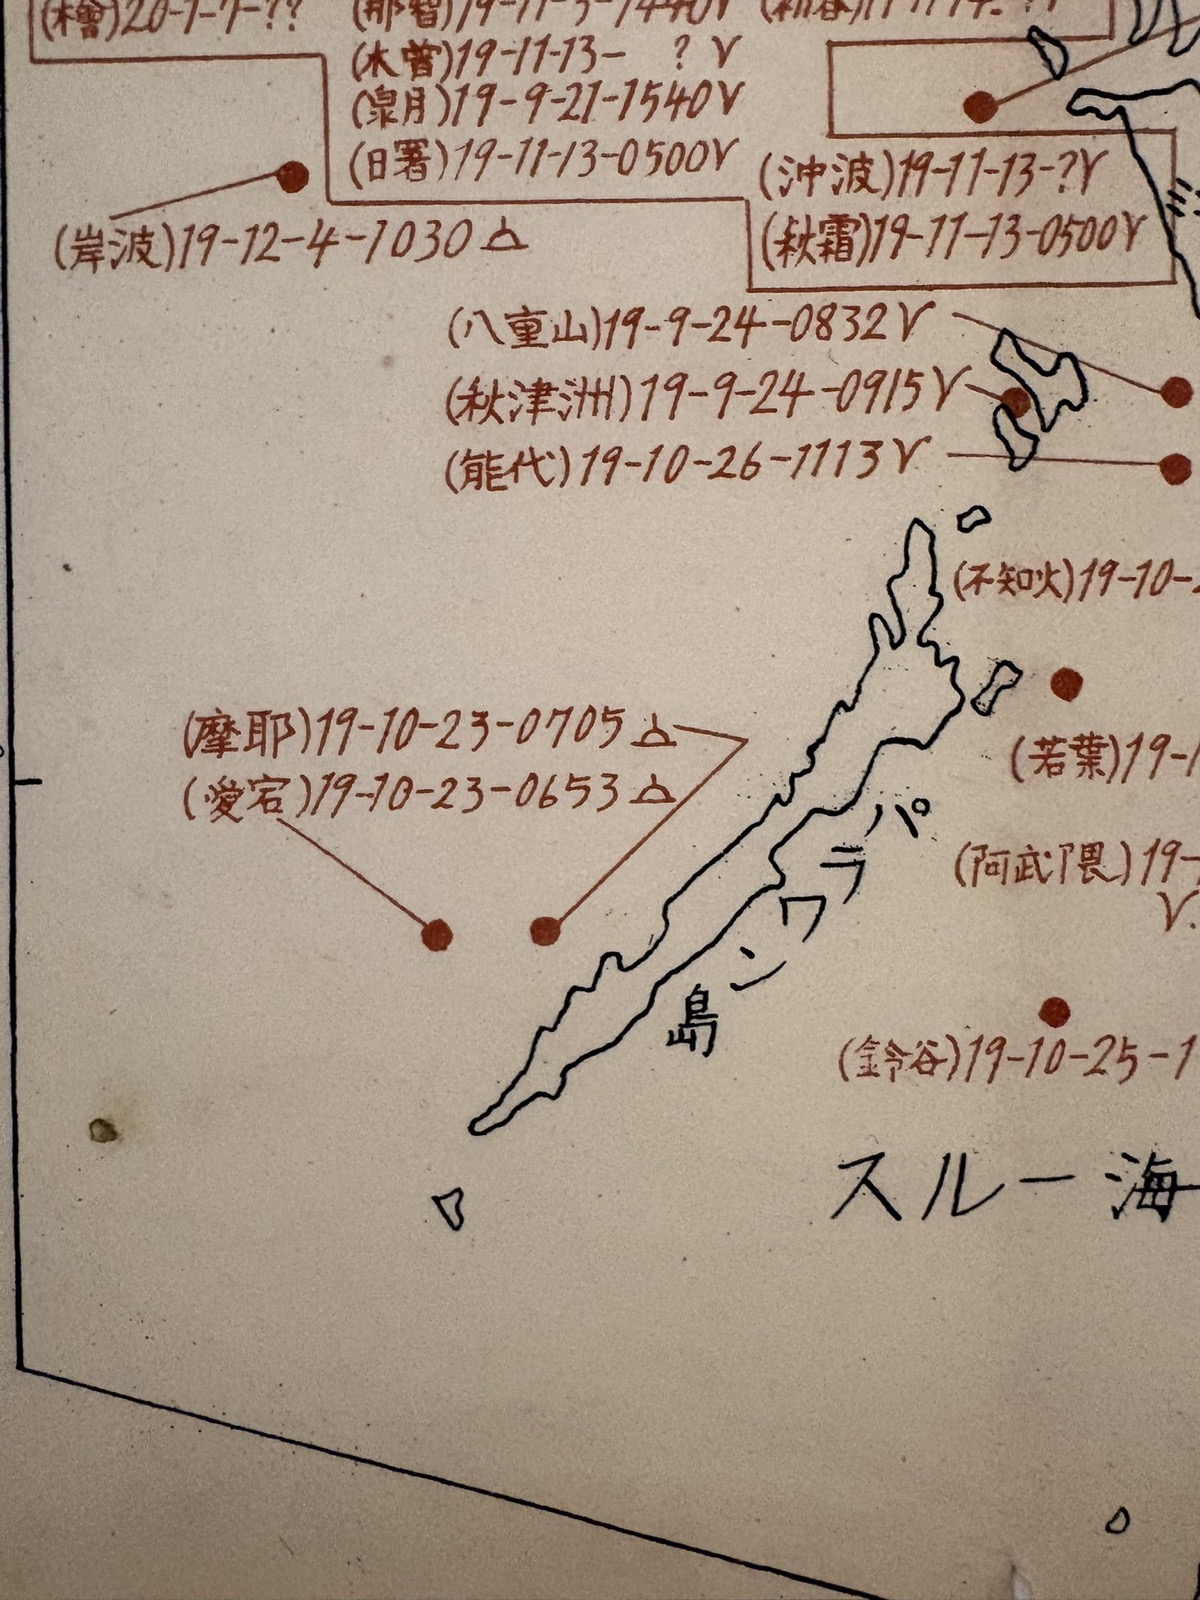 (檜)20-1-7-??
(那智)19-11-5-1440V
(木曽)19-11-13- ? V
(皐月)19-9-21-1540V
(曙)19-11-13-0500V
(沖波)19-11-13-?V
(秋霜)19-11-13-0500V
(岸波)19-12-4-1030
(八重山)19-9-24-0832V
(秋津洲)19-9-24-0915V
(能代)19-10-26-1113V
(不知火)19-10-
(摩耶)19-10-23-0705
(愛宕)19-10-23-0653
(若葉)19-1
(阿武隈)19-
V.
パラワン島
(鈴谷)19-10-25-1
スルー海